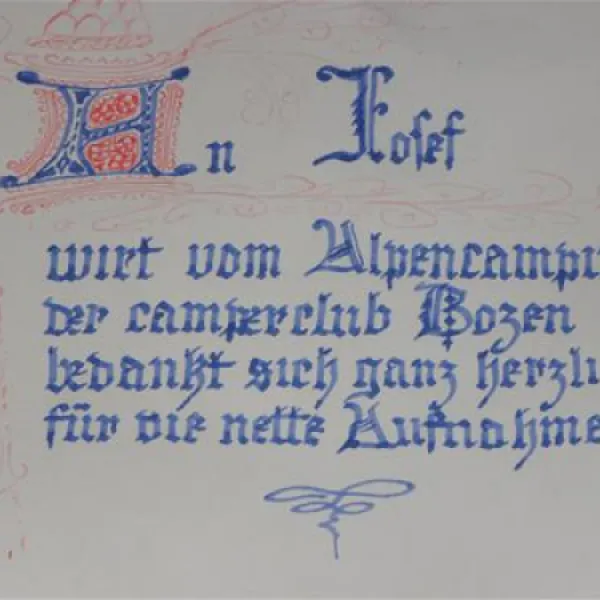 An Josef
wirt vom Alpencampi
der camperclub Bozen
bedankt sich ganz herzli
für die nette Aufnahme